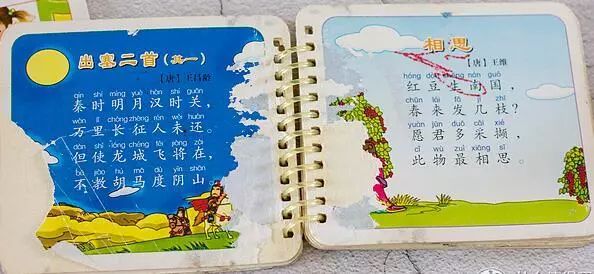 出塞二首(其一)
【唐】王昌龄
qín shí míng yuè hàn shí guān
秦时明月汉时关,
wàn lǐ cháng zhēng rén wèi huán
万里长征人未还。
dàn shǐ lóng chéng fēi jiàng zài
但使龙城飞将在,
bú jiào hú mǎ dù yīn shān
不教胡马度阴山
相思
【唐】王维
hóng dòu shēng nán guó
红豆生南国,
chūn lái fā jǐ zhī
春来发几枝?
yuàn jūn duō cǎi xié
愿君多采撷,
cǐ wù zuì xiāng sī
此物最相思。